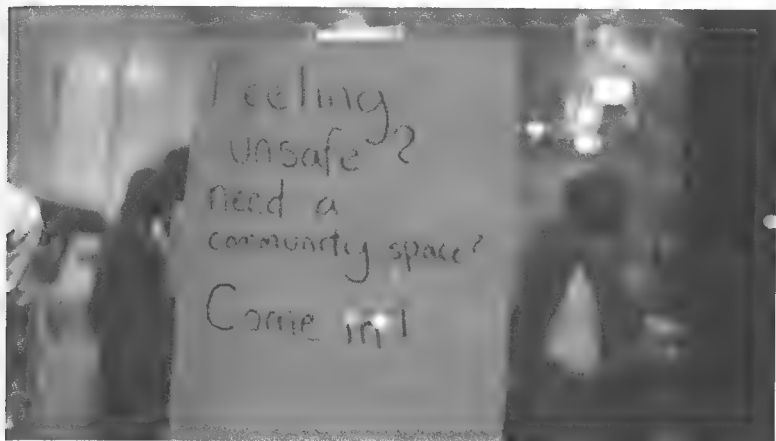 Feeling
unsafe?
need a
community space?
Come in!